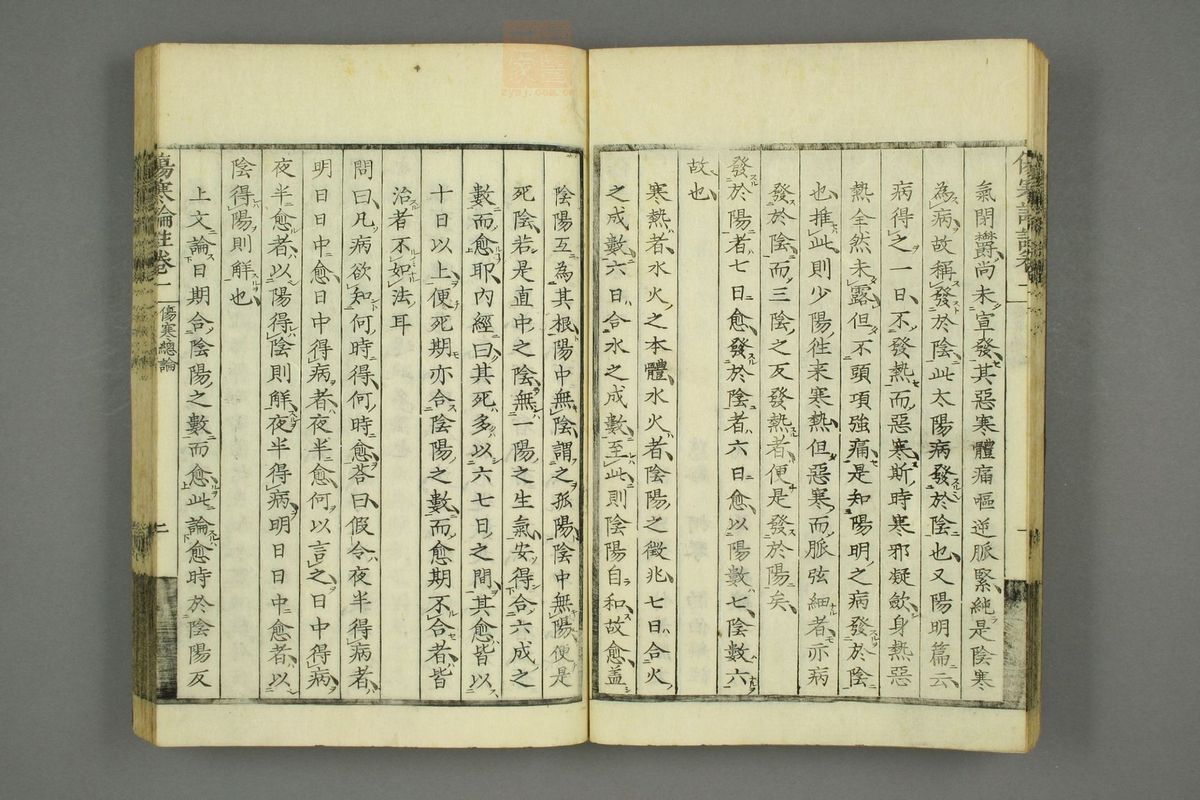 氣閉鬱尚未宣發其惡寒體痛嘔逆脈緊純是陰寒
為病故稱發於陰此太陽病發於陰也又陽明篇云
病得之一日不發熱而惡寒斯時寒邪凝斂身熱惡
熱全然未露但不頭項強痛是知陽明之病發於陰
也推此則少陽徃来寒熱但惡寒而脈弦細者亦病
發於陰而三陰之反發熱者便是發於陽矣
發於陽者七日愈發於陰者六日愈以陽數七陰數六
故也
寒熱者水火之本體水火者陰陽之徵兆七日合火
之成數六日合水之成數至此則陰陽自和故愈盖
陰陽互為其根陽中無陰謂之孤陽陰中無陽便是
死陰若是直中之陰無一陽之生氣安得合六成之
數而愈耶內經曰其死多以六七日之間其愈皆以
十日以上便死期亦合陰陽之數而愈期不合者皆
治者不如法耳
問曰凡病欲知何時得何時愈荅曰假令夜半得病者
明日日中愈日中得病者夜半愈何以言之日中得病
夜半愈者以陽得陰則解夜半得病明日日中愈者以
陰得陽則解也
上文論日期合陰陽之數而愈此論愈時於陰陽反
傷寒論註卷一
傷寒總論
zysj.com.cn